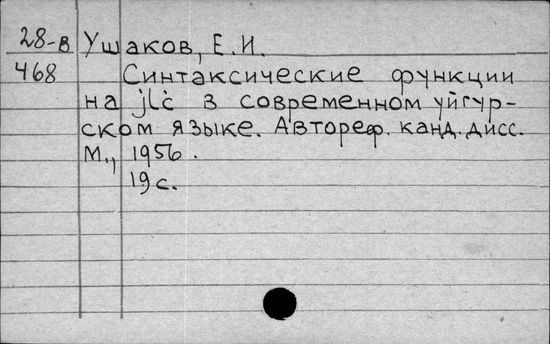 28-в Ушаков, Е.И.
468 Синтаксические функции
на jlċ в современном уйгур-
ском языке. Автореф. канд. дисс.
М., 1956.
19 с.